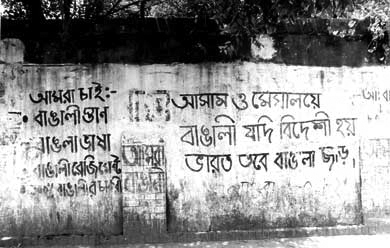 আমরা চাই:-
বাঙালীস্তান
বাঙলা ভাষা
বাঙালী রেজিমেন্ট
বাঙালীর চাকরী
আমরা
বাঙালী
আসাম ও মেঘালয়ে
বাঙালী যদি বিদেশী হয়
ভারত তবে বাঙলা ছাড়।
আ